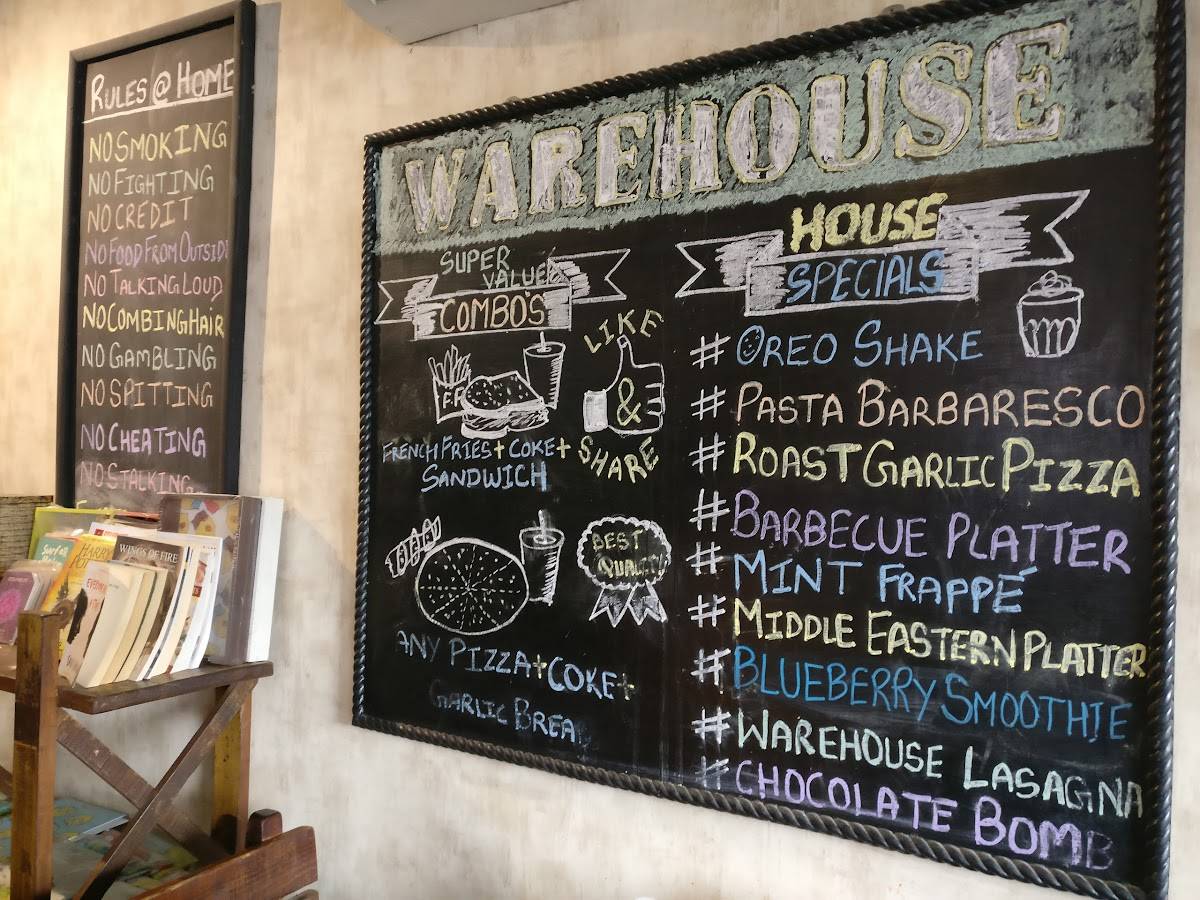 RULES @ HOME
NO SMOKING
NO FIGHTING
NO CREDIT
NO FOOD FROM OUTSIDE
NO TALKING LOUD
NO COMBING HAIR
NO GAMBLING
NO SPITTING
NO CHEATING
NO STALKING
HARRY
WINGS OF FIRE
WAREHOUSE
SUPER
VALUE
COMBO'S
F.F.
LIKE
&
SHARE
FRENCH FRIES + COKE +
SANDWICH
BEST
QUALITY
ANY PIZZA + COKE +
GARLIC BREAD
HOUSE
SPECIALS
# OREO SHAKE
# PASTA BARBARESCO
# ROAST GARLIC PIZZA
# BARBECUE PLATTER
# MINT FRAPPÉ
# MIDDLE EASTERN PLATTER
# BLUEBERRY SMOOTHIE
# WAREHOUSE LASAGNA
# CHOCOLATE BOMB